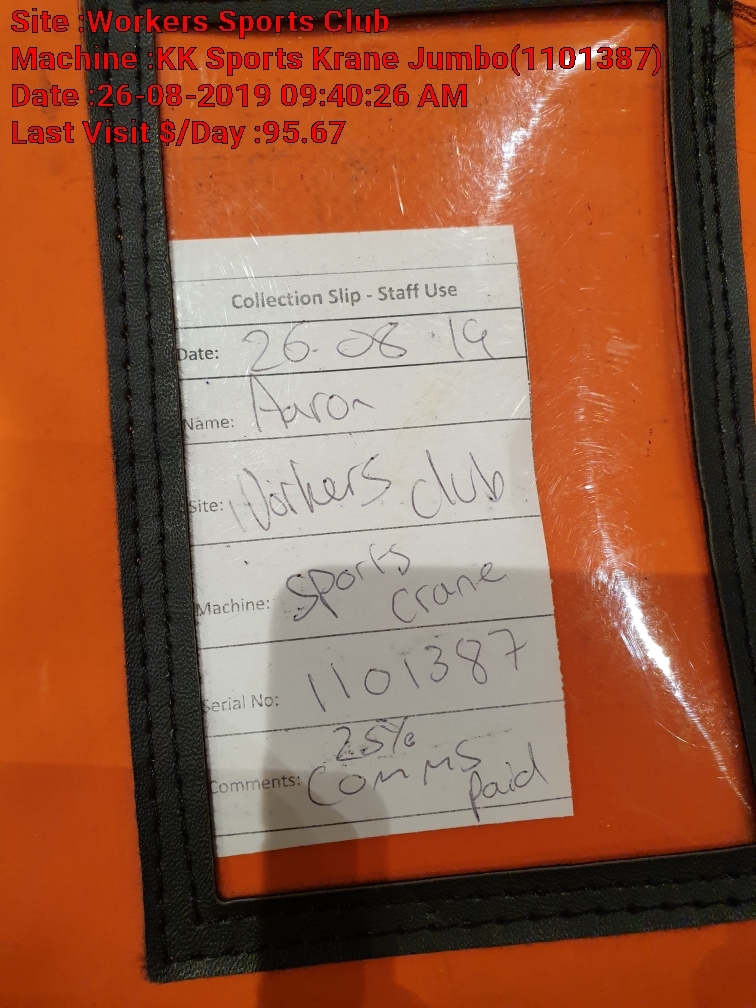 Site :Workers Sports Club
Machine :KK Sports Krane Jumbo(1101387)
Date :26-08-2019 09:40:26 AM
Last Visit $/Day :95.67
Collection Slip - Staff Use
Date: 26-08 19
Name: Aaron
Site: Workers club
Machine: Sports
crane
Serial No: 1101387
25%
Comments: Comms
paid